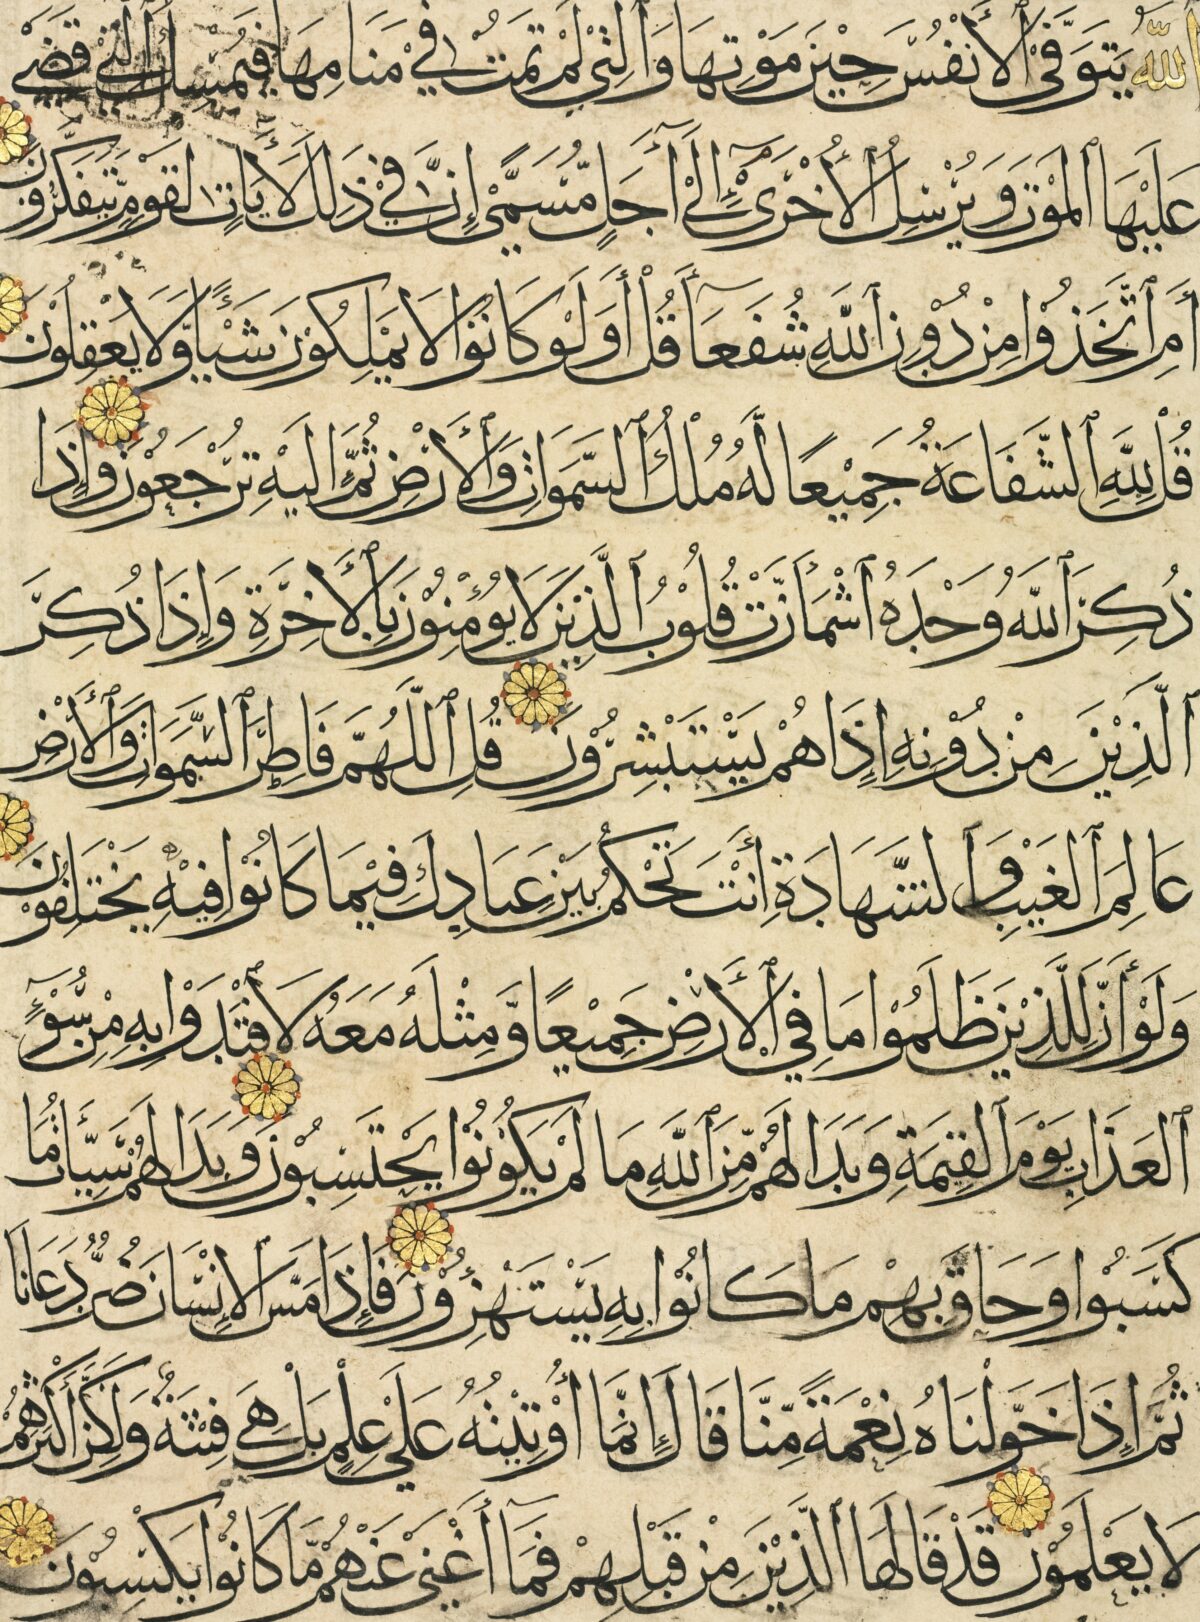 ٱللَّهُ يَتَوَفَّى ٱلْأَنْفُسَ حِيْنَ مَوْتِهَا وَٱلَّتِيْ لَمْ تَمُتْ فِيْ مَنَامِهَا فَيُمْسِكُ ٱلَّتِيْ قَضَىٰ
عَلَيْهَا ٱلْمَوْتَ وَيُرْسِلُ ٱلْأُخْرَىٰٓ إِلَىٰٓ أَجَلٍ مُّسَمًّى إِنَّ فِيْ ذَٰلِكَ لَأٰيَاتٍ لِّقَوْمٍ يَّتَفَكَّرُوْنَ
أَمِ ٱتَّخَذُوْا مِنْ دُوْنِ ٱللَّهِ شُفَعَآءَ قُلْ أَوَلَوْ كَانُوْا لَا يَمْلِكُوْنَ شَيْئًا وَّلَا يَعْقِلُوْنَ
قُلْ لِلَّهِ ٱلشَّفَاعَةُ جَمِيْعًا لَّهُ مُلْكُ ٱلسَّمَوَاتِ وَٱلْأَرْضِ ثُمَّ إِلَيْهِ تُرْجَعُوْنَ وَإِذَا
ذُكِرَ ٱللَّهُ وَحْدَهُ ٱشْمَأَزَّتْ قُلُوْبُ ٱلَّذِيْنَ لَا يُؤْمِنُوْنَ بِٱلْأَخِرَةِ وَإِذَا ذُكِرَ
ٱلَّذِيْنَ مِنْ دُوْنِهِ إِذَا هُمْ يَسْتَبْشِرُوْنَ قُلِ ٱللَّهُمَّ فَاطِرَ ٱلسَّمَوَاتِ وَٱلْأَرْضِ
عَالِمَ ٱلْغَيْبِ وَٱلشَّهَادَةِ أَنْتَ تَحْكُمُ بَيْنَ عِبَادِكَ فِيْمَا كَانُوْا فِيْهِ يَخْتَلِفُوْنَ
وَلَوْ أَنَّ لِلَّذِيْنَ ظَلَمُوْا مَا فِي ٱلْأَرْضِ جَمِيْعًا وَّمِثْلَهُ مَعَهُ لَافْتَدَوْا بِهِ مِنْ سُوْٓءِ
ٱلْعَذَابِ يَوْمَ ٱلْقِيٰمَةِ وَبَدَا لَهُمْ مِّنَ ٱللَّهِ مَا لَمْ يَكُوْنُوْا يَحْتَسِبُوْنَ وَبَدَا لَهُمْ سَيِّئَاتُ مَا
كَسَبُوْا وَحَاقَ بِهِمْ مَا كَانُوْا بِهِ يَسْتَهْزِئُوْنَ فَإِذَا مَسَّ ٱلْإِنْسَانَ ضُرٌّ دَعَانَا
ثُمَّ إِذَا خَوَّلْنَاهُ نِعْمَةً مِّنَّا قَالَ إِنَّمَا أُوْتِيْتُهُ عَلَىٰ عِلْمٍ بَلْ هِيَ فِتْنَةٌ وَّلَكِنَّ أَكْثَرَهُمْ
لَا يَعْلَمُوْنَ قَدْ قَالَهَا ٱلَّذِيْنَ مِنْ قَبْلِهِمْ فَمَآ أَغْنَىٰ عَنْهُمْ مَّا كَانُوْا يَكْسِبُوْنَ